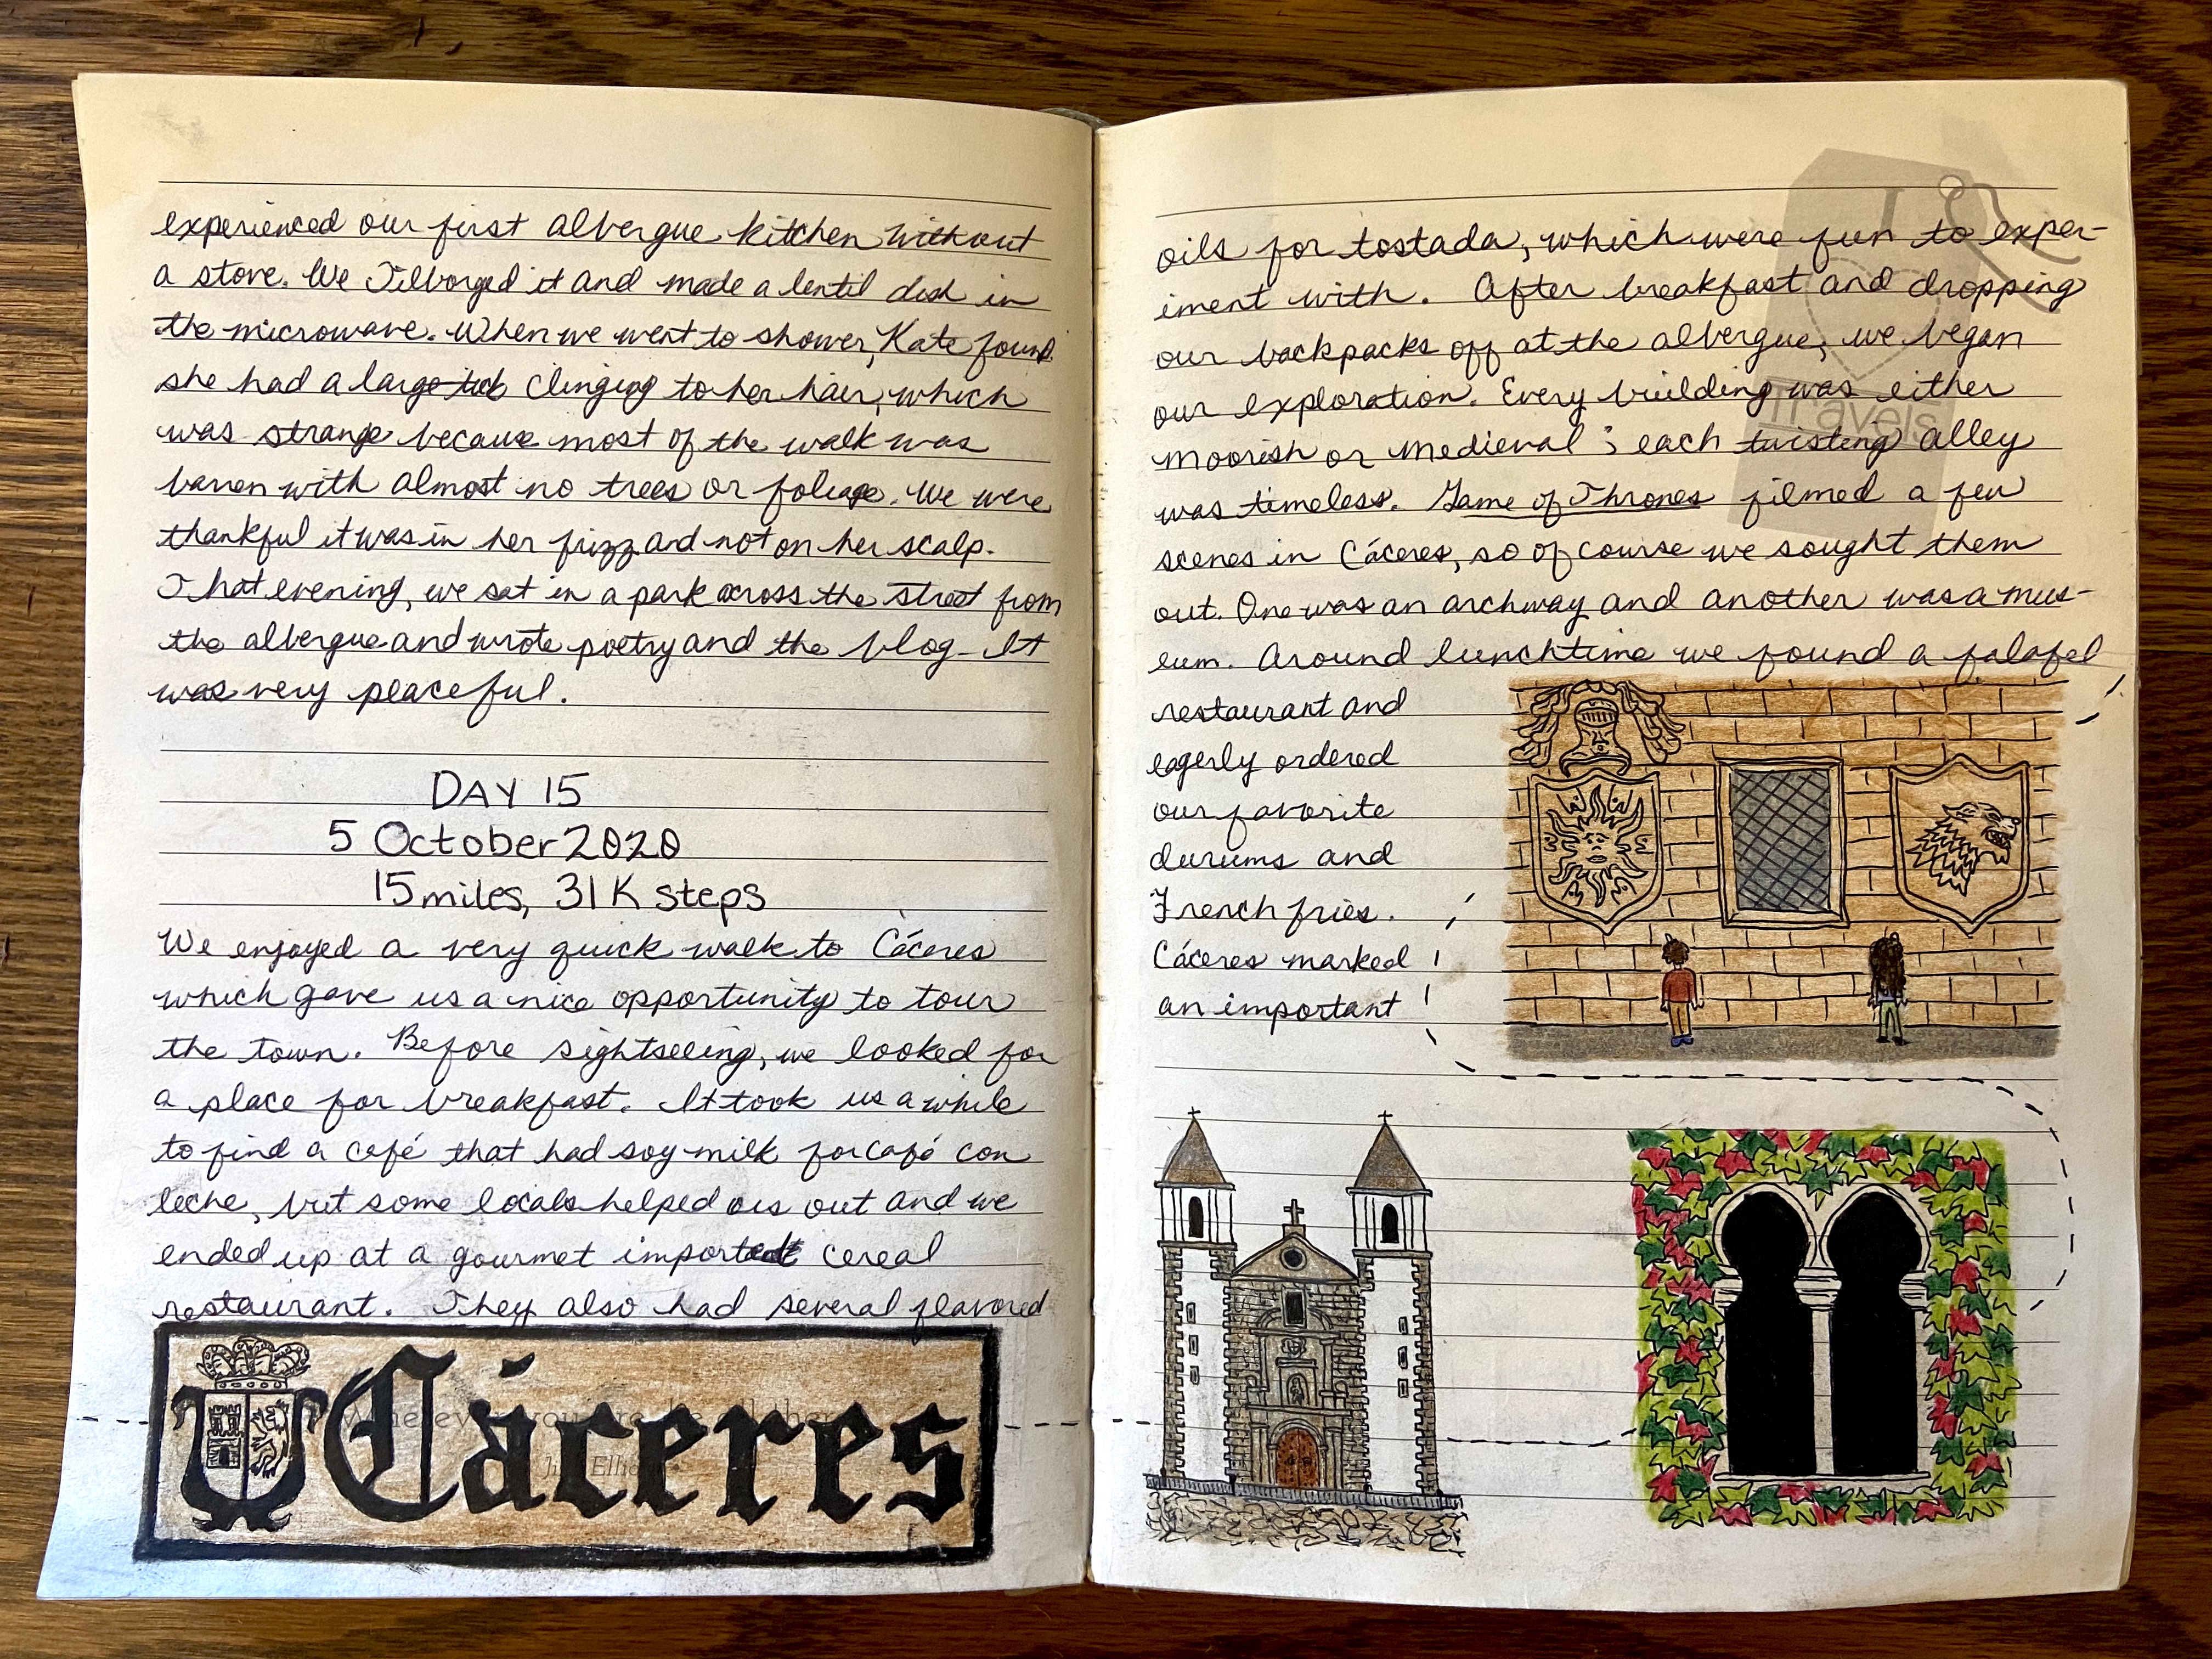 experienced our first albergue kitchen without
a stove. We Jilborged it and made a lentil dish in
the microwave. When we went to shower, Kate found
she had a large tick clinging to her hair, which
was strange because most of the walk was
barren with almost no trees or foliage. We were
thankful it was in her frizz and not on her scalp.
That evening, we sat in a park across the street from
the albergue and wrote poetry and the blog. It
was very peaceful.
DAY 15
5 October 2020
15 miles, 31K steps
We enjoyed a very quick walk to Cáceres
which gave us a nice opportunity to tour
the town. Before sightseeing, we looked for
a place for breakfast. It took us a while
to find a café that had soy milk for café con
leche, but some locals helped us out and we
ended up at a gourmet imported cereal
restaurant. They also had several flavored
Cáceres
oils for tostada, which were fun to exper-
iment with. After breakfast and dropping
our backpacks off at the albergue, we began
our exploration. Every building was either
Moorish or Medieval; each twisting alley
was timeless. Game of Thrones filmed a few
scenes in Cáceres, so of course we sought them
out. One was an archway and another was a mus-
eum. Around lunchtime we found a falafel
restaurant and
eagerly ordered
our favorite
durums and
French fries.
Cáceres marked
an important
I
Travels